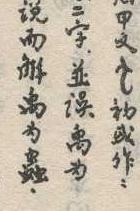 甲文初或作
二字，並誤禹为
说而解禹为蟲，